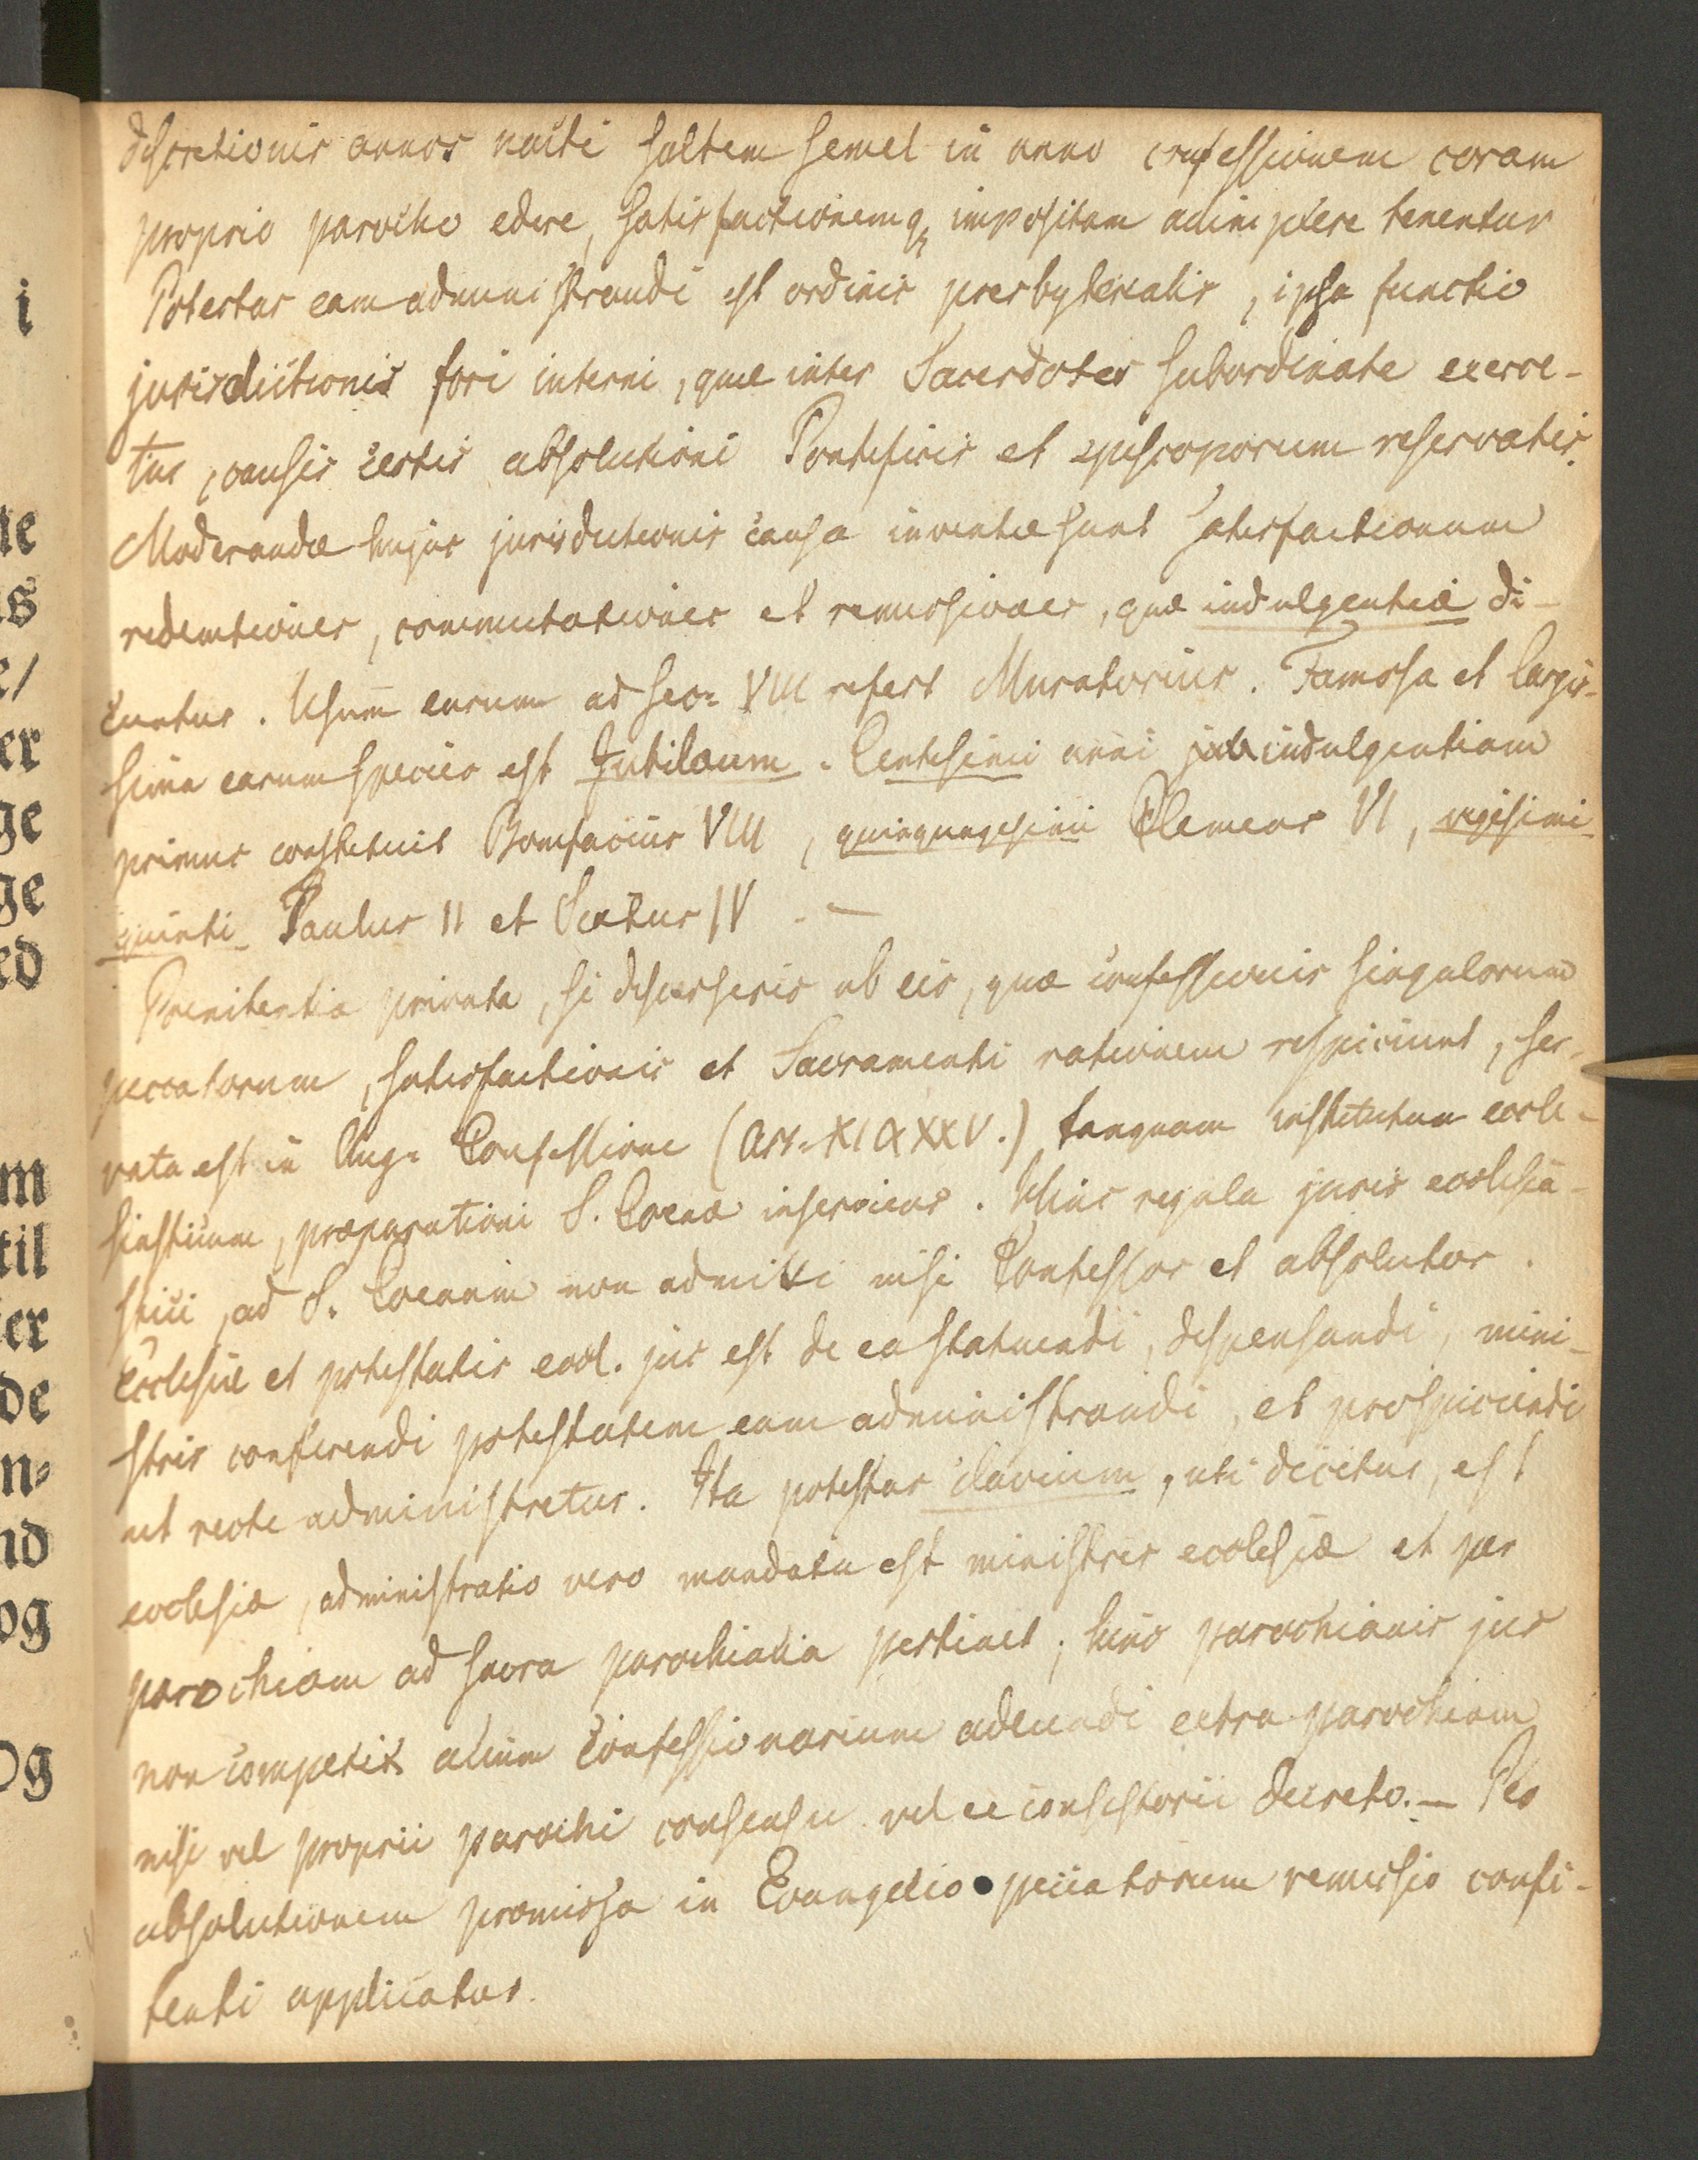 discretionis annos nacti saltem semel in anno confessionem coram
proprio parocho edere, satisfactionemq; impositam adimplere tenentur
Potestas eam administrandi est ordinis presbyteralis, ipsa functio
jurisdictionis fori interni, quæ inter Sacerdotes subordinate exerce-
tur, causis certis absolutioni Pontificis et episcoporum reservatis.
Moderandæ hujus jurisdictionis causa inventæ sunt satisfactionum
redemtiones, commutationes et remissiones, quæ indulgentiæ di-
cuntur. Usum earum ad sec= VIII refert Muratorius. Famosa et largis-
sima earum species est Jubilæum. Centesimi anni indulgentiam
primus constituit Bonifacius VIII, quinquagesimi Clemens VI, vigesimi
quinti Paulus II et Sixtus IV. —
Poenitentia privata, si discesseris ab eis, quæ confessionis singulorum
peccatorum, satisfactionis et Sacramenti rationem respiciunt, ser-
vata est in Aug= Confessione (Art= XI & XXV.) tanquam institutum eccle-
siasticum, præparationi S. Coenæ inserviens. Hinc regula juris ecclesia-
stici, ad S. Coenam non admitti nisi Confessos et absolutos.
Ecclesiæ et potestatis eccl. jus est de ea statuendi, dispensandi, mini-
stris conferendi potestatem eam administrandi, et prospiciendi
ut recte administretur. Ita potestas clavium, uti dicitur, est
ecclesiæ, administratio vero mandata est ministris ecclesiæ et per
parochiam ad sacra parochialia pertinet; hinc parochianis jus
non competit alium Confessionarium adeundi extra parochiam
nisi vel proprii parochi consensu vel ex consistorii decreto. — Per
absolutionem promissa in Evangelio peccatorum remissio confi-
tenti applicatur.
i
te
is
e/
er
ge
ge
ed
m
til
er
de
n=
nd
og
og